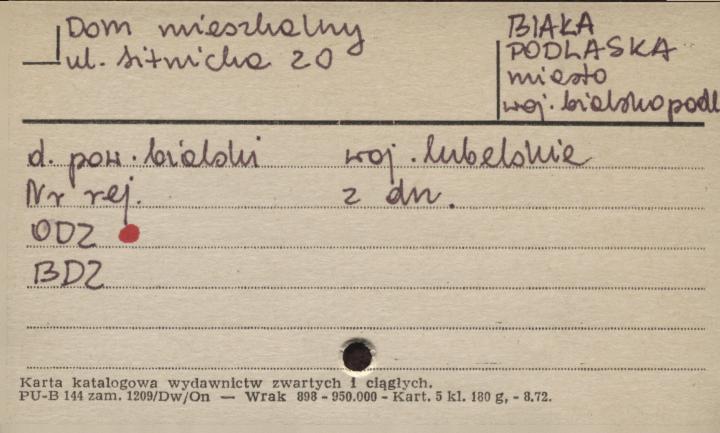 Dom mieszkalny
ul. Sitnicka 20
BIAŁA
PODLASKA
miasto
woj. bialskopodl
d. pow. bialski woj. lubelskie
Nr rej. z dn.
ODZ
BDZ
Karta katalogowa wydawnictw zwartych i ciągłych.
PU-B 144 zam. 1209/Dw/On — Wrak 898 - 950.000 - Kart. 5 kl. 180 g, - 8.72.